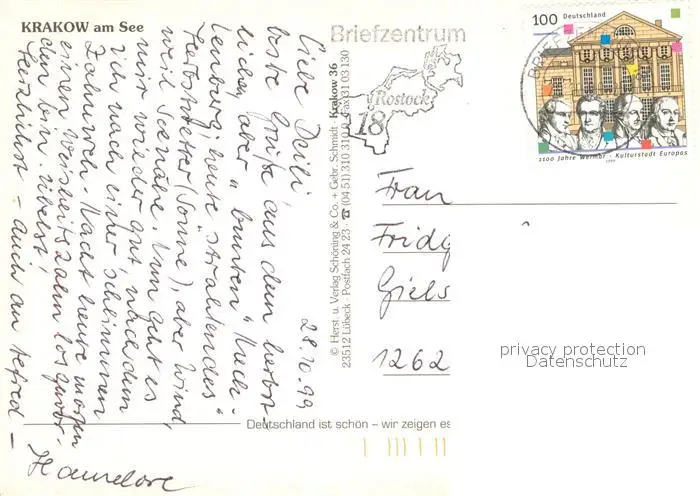 KRAKOW am See
28.10.99
Liebe Deili,
beste Grüße aus dem herbst-
lichen, aber "bunten" Meck-
lenburg; heute "strahlendes"
Herbstwetter (Sonne), aber Wind,
weil Seenähe. Nun geht es
mir wieder gut, nachdem
ich nach einer schlimmen
Zahnweh Nacht heute morgen
einen Weisheitszahn losgewor-
den bin.
Herzlichst – auch an
Hannelore
© Herst. u. Verlag Schöning & Co. + Gebr. Schmidt · Krakow 36
23512 Lübeck · Postfach 24 23 · ☎ (04 51) 310 31 03 130
Briefzentrum
18
Rostock
100 Deutschland
1100 Jahre Weimar · Kulturstadt Europas
1999
Frau
Fridg
Giels
1262
privacy protection
Datenschutz
Deutschland ist schön – wir zeigen es